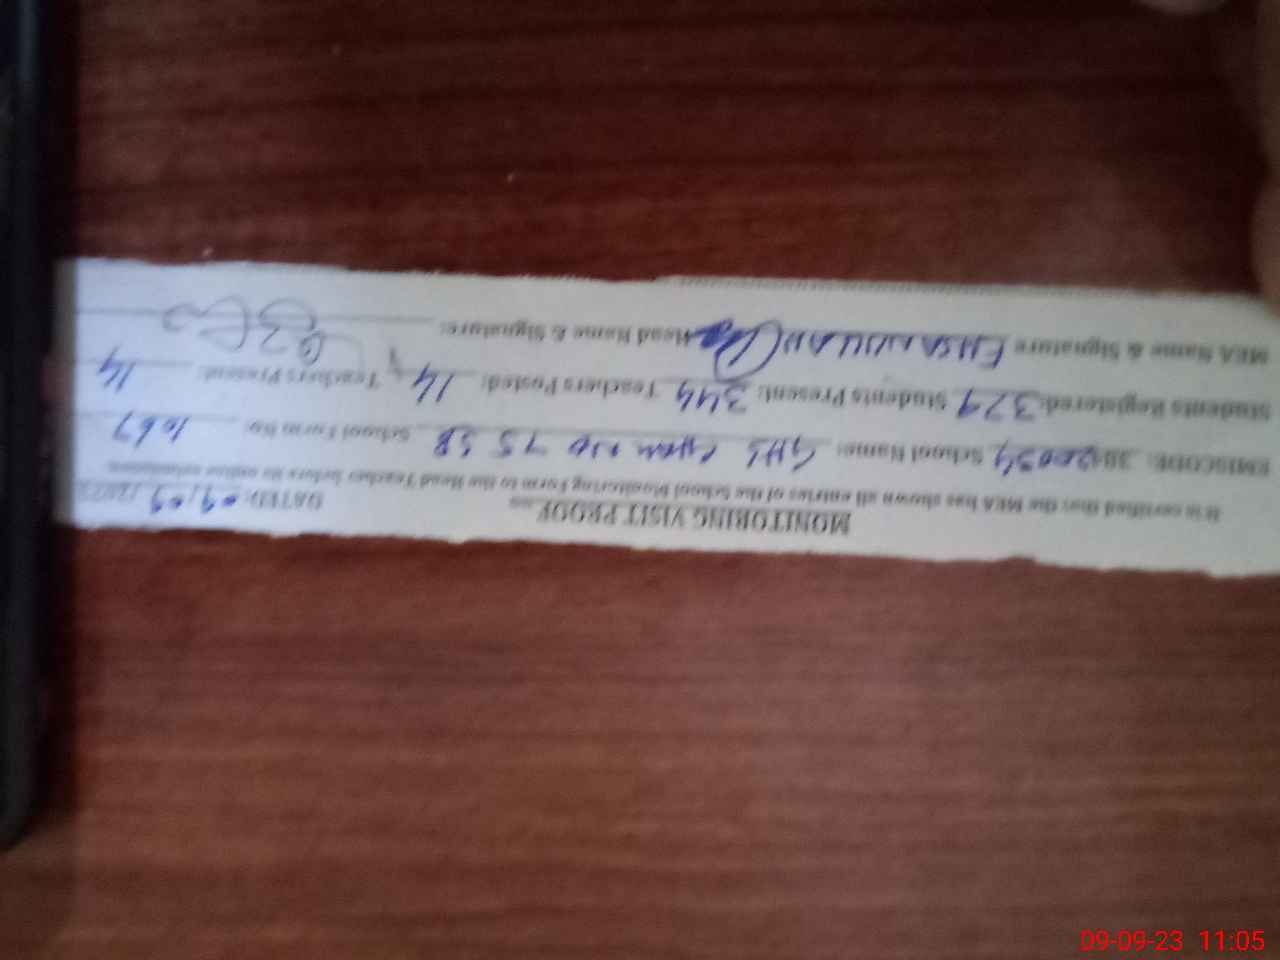 MONITORING VISIT PROOF
DATED: 09/09/2023
It is certified that the MEA has shown all entries of the School Monitoring Form to the Head Teacher before its online submission.
EMISCODE: School Name: GHS School Form No: 1067
Students Registered: 379 Students Present: 344 Teachers Posted: 14 Teachers Present: 14
MEA Name & Signature EHSAN ULLAH Head Name & Signature:
09-09-23 11:05